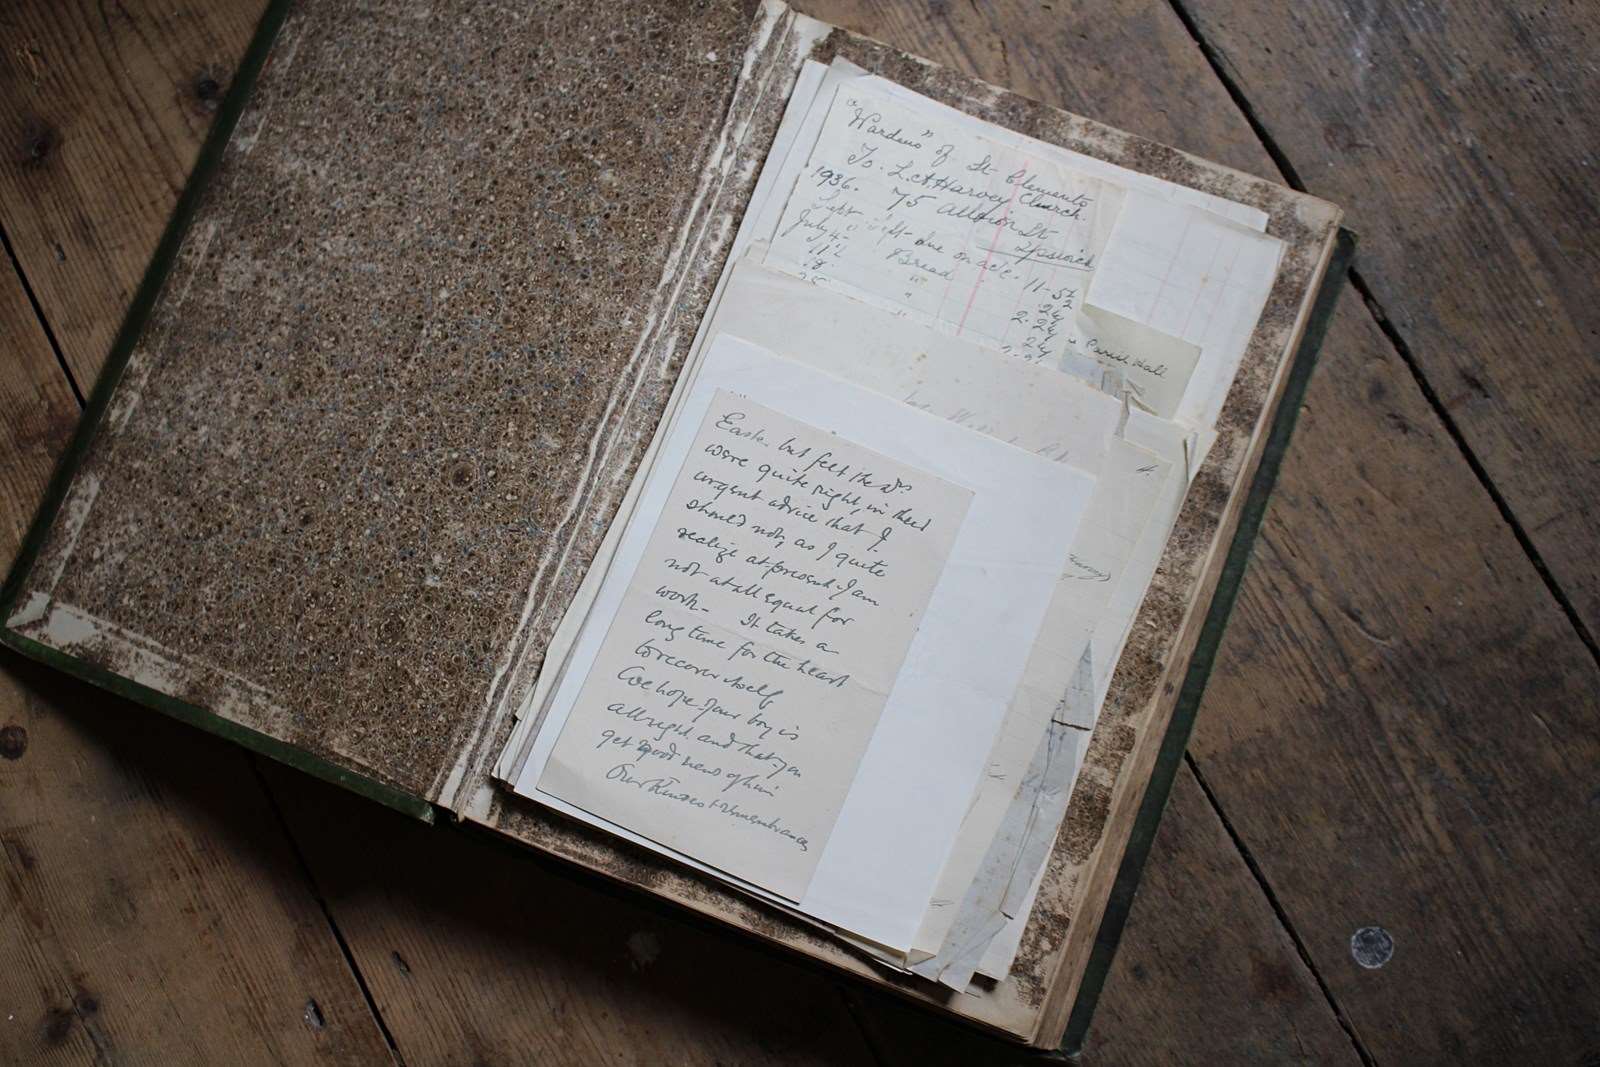 "Wardens" of St Clements Church.
To. L. A. Harvey
75 Albion St
Ipswich
1936.
Sept due on a/c. 11-5½
July 4 Bread 2½
11th " 2.2½
18. " 2½
25
Parish Hall
Easter but felt the Drs
were quite right, in their
urgent advice that I
should not, as I quite
realize at present I am
not at all equal for
work - It takes a
long time for the heart
to recover itself
We hope your boy is
allright and that you
get good news of him
Our Kindest remembrances